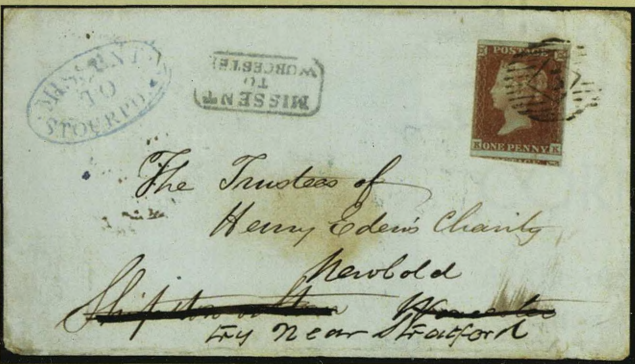 MISSENT
TO
STOURPO
MISSENT
TO
WORCESTE
POSTAGE
K K
ONE PENNY
The Trustees of
Henry Eden's Charity
Newbold
Shipston Worcester
try near Stratford